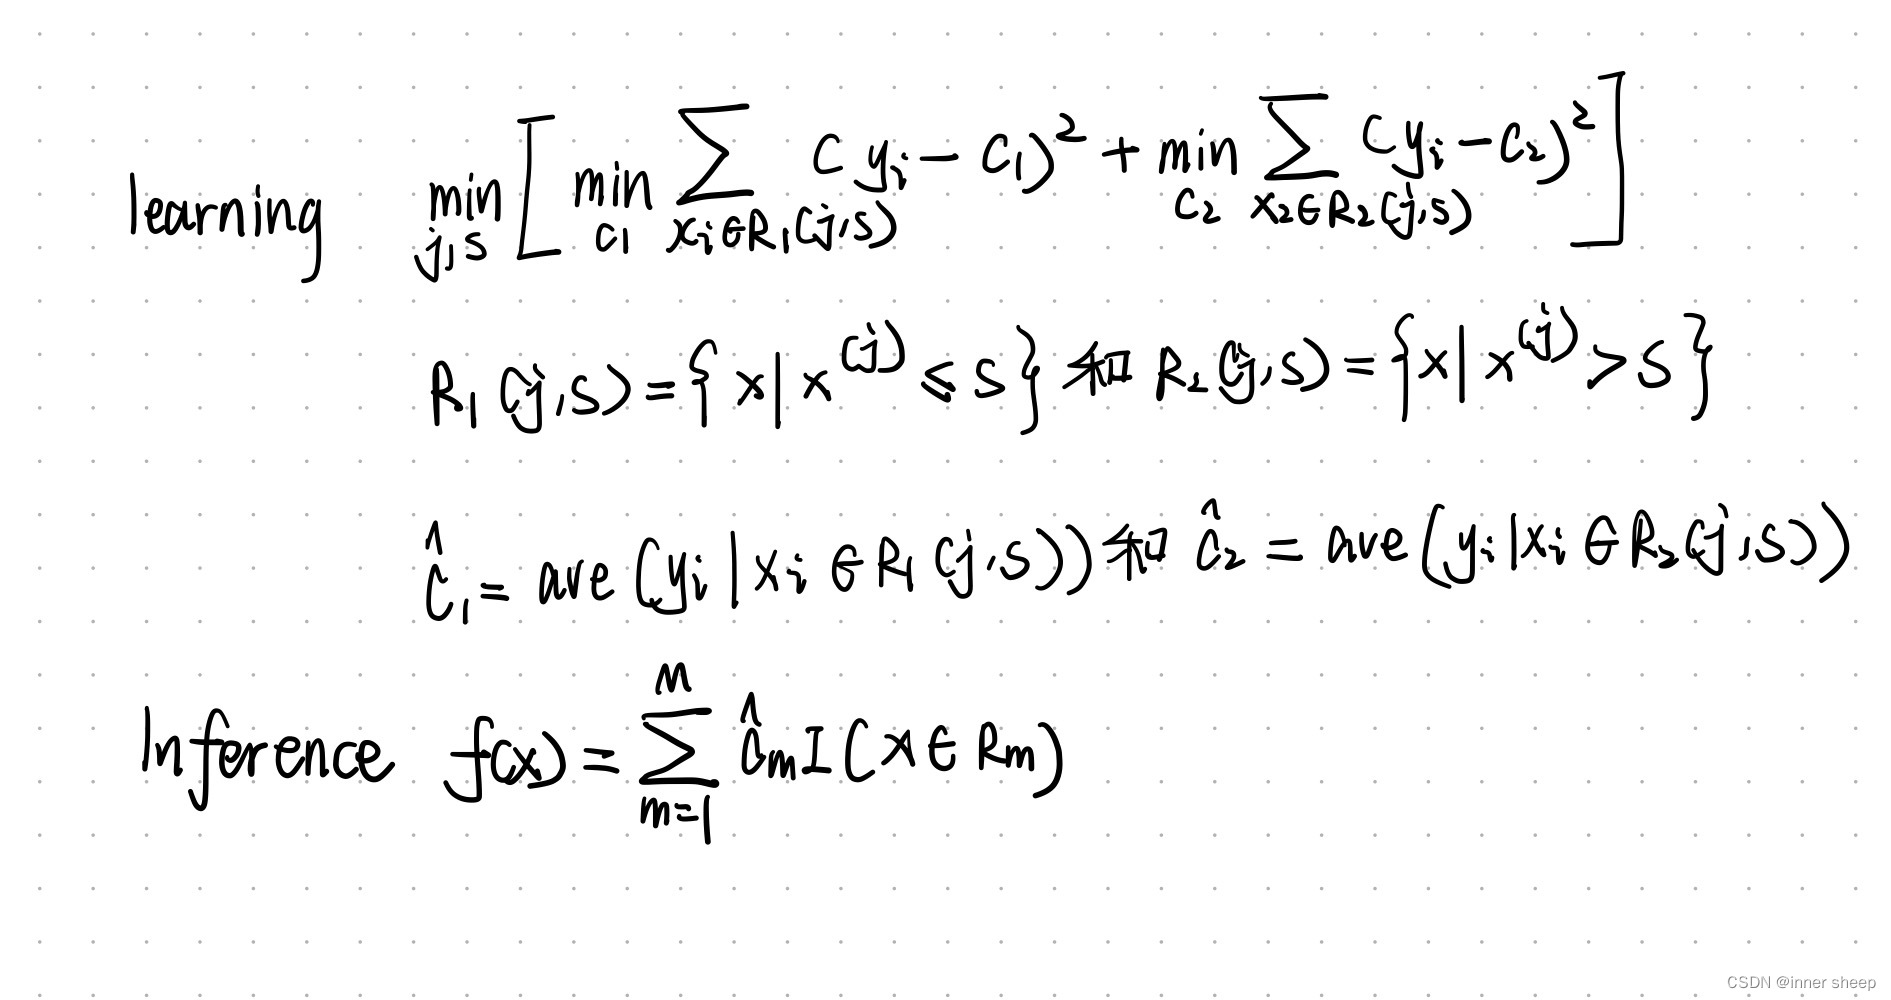 learning min_{j,s} [ min_{c1} ∑_{xi∈R1(j,s)} (yi − c1)² + min_{c2} ∑_{x2∈R2(j,s)} (yi − c2)² ]
R1(j,s) = { x | x^(j) ⩽ s } 和 R2(j,s) = { x | x^(j) > s }
ĉ1 = ave (yi | xi ∈ R1(j,s)) 和 ĉ2 = ave (yi | xi ∈ R2(j,s))
Inference f(x) = ∑_{m=1}^{M} ĉm I (x ∈ Rm)
CSDN @inner sheep